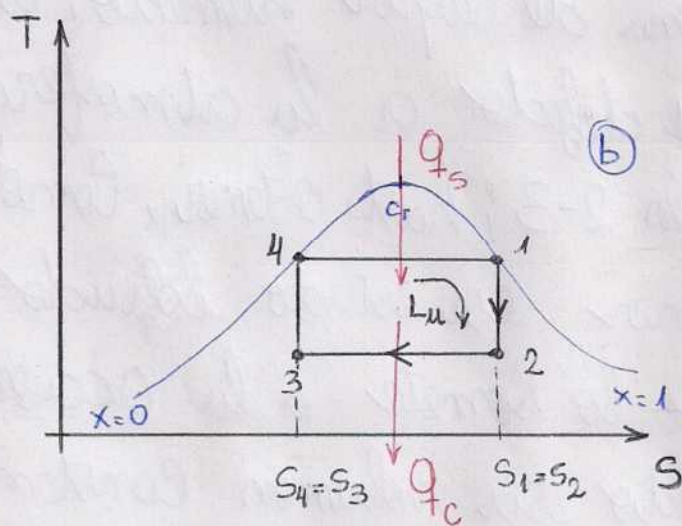 T
b
Qs
Cr
4
1
Lu
3
2
x=0
x=1
S4=S3
S1=S2
S
Qc